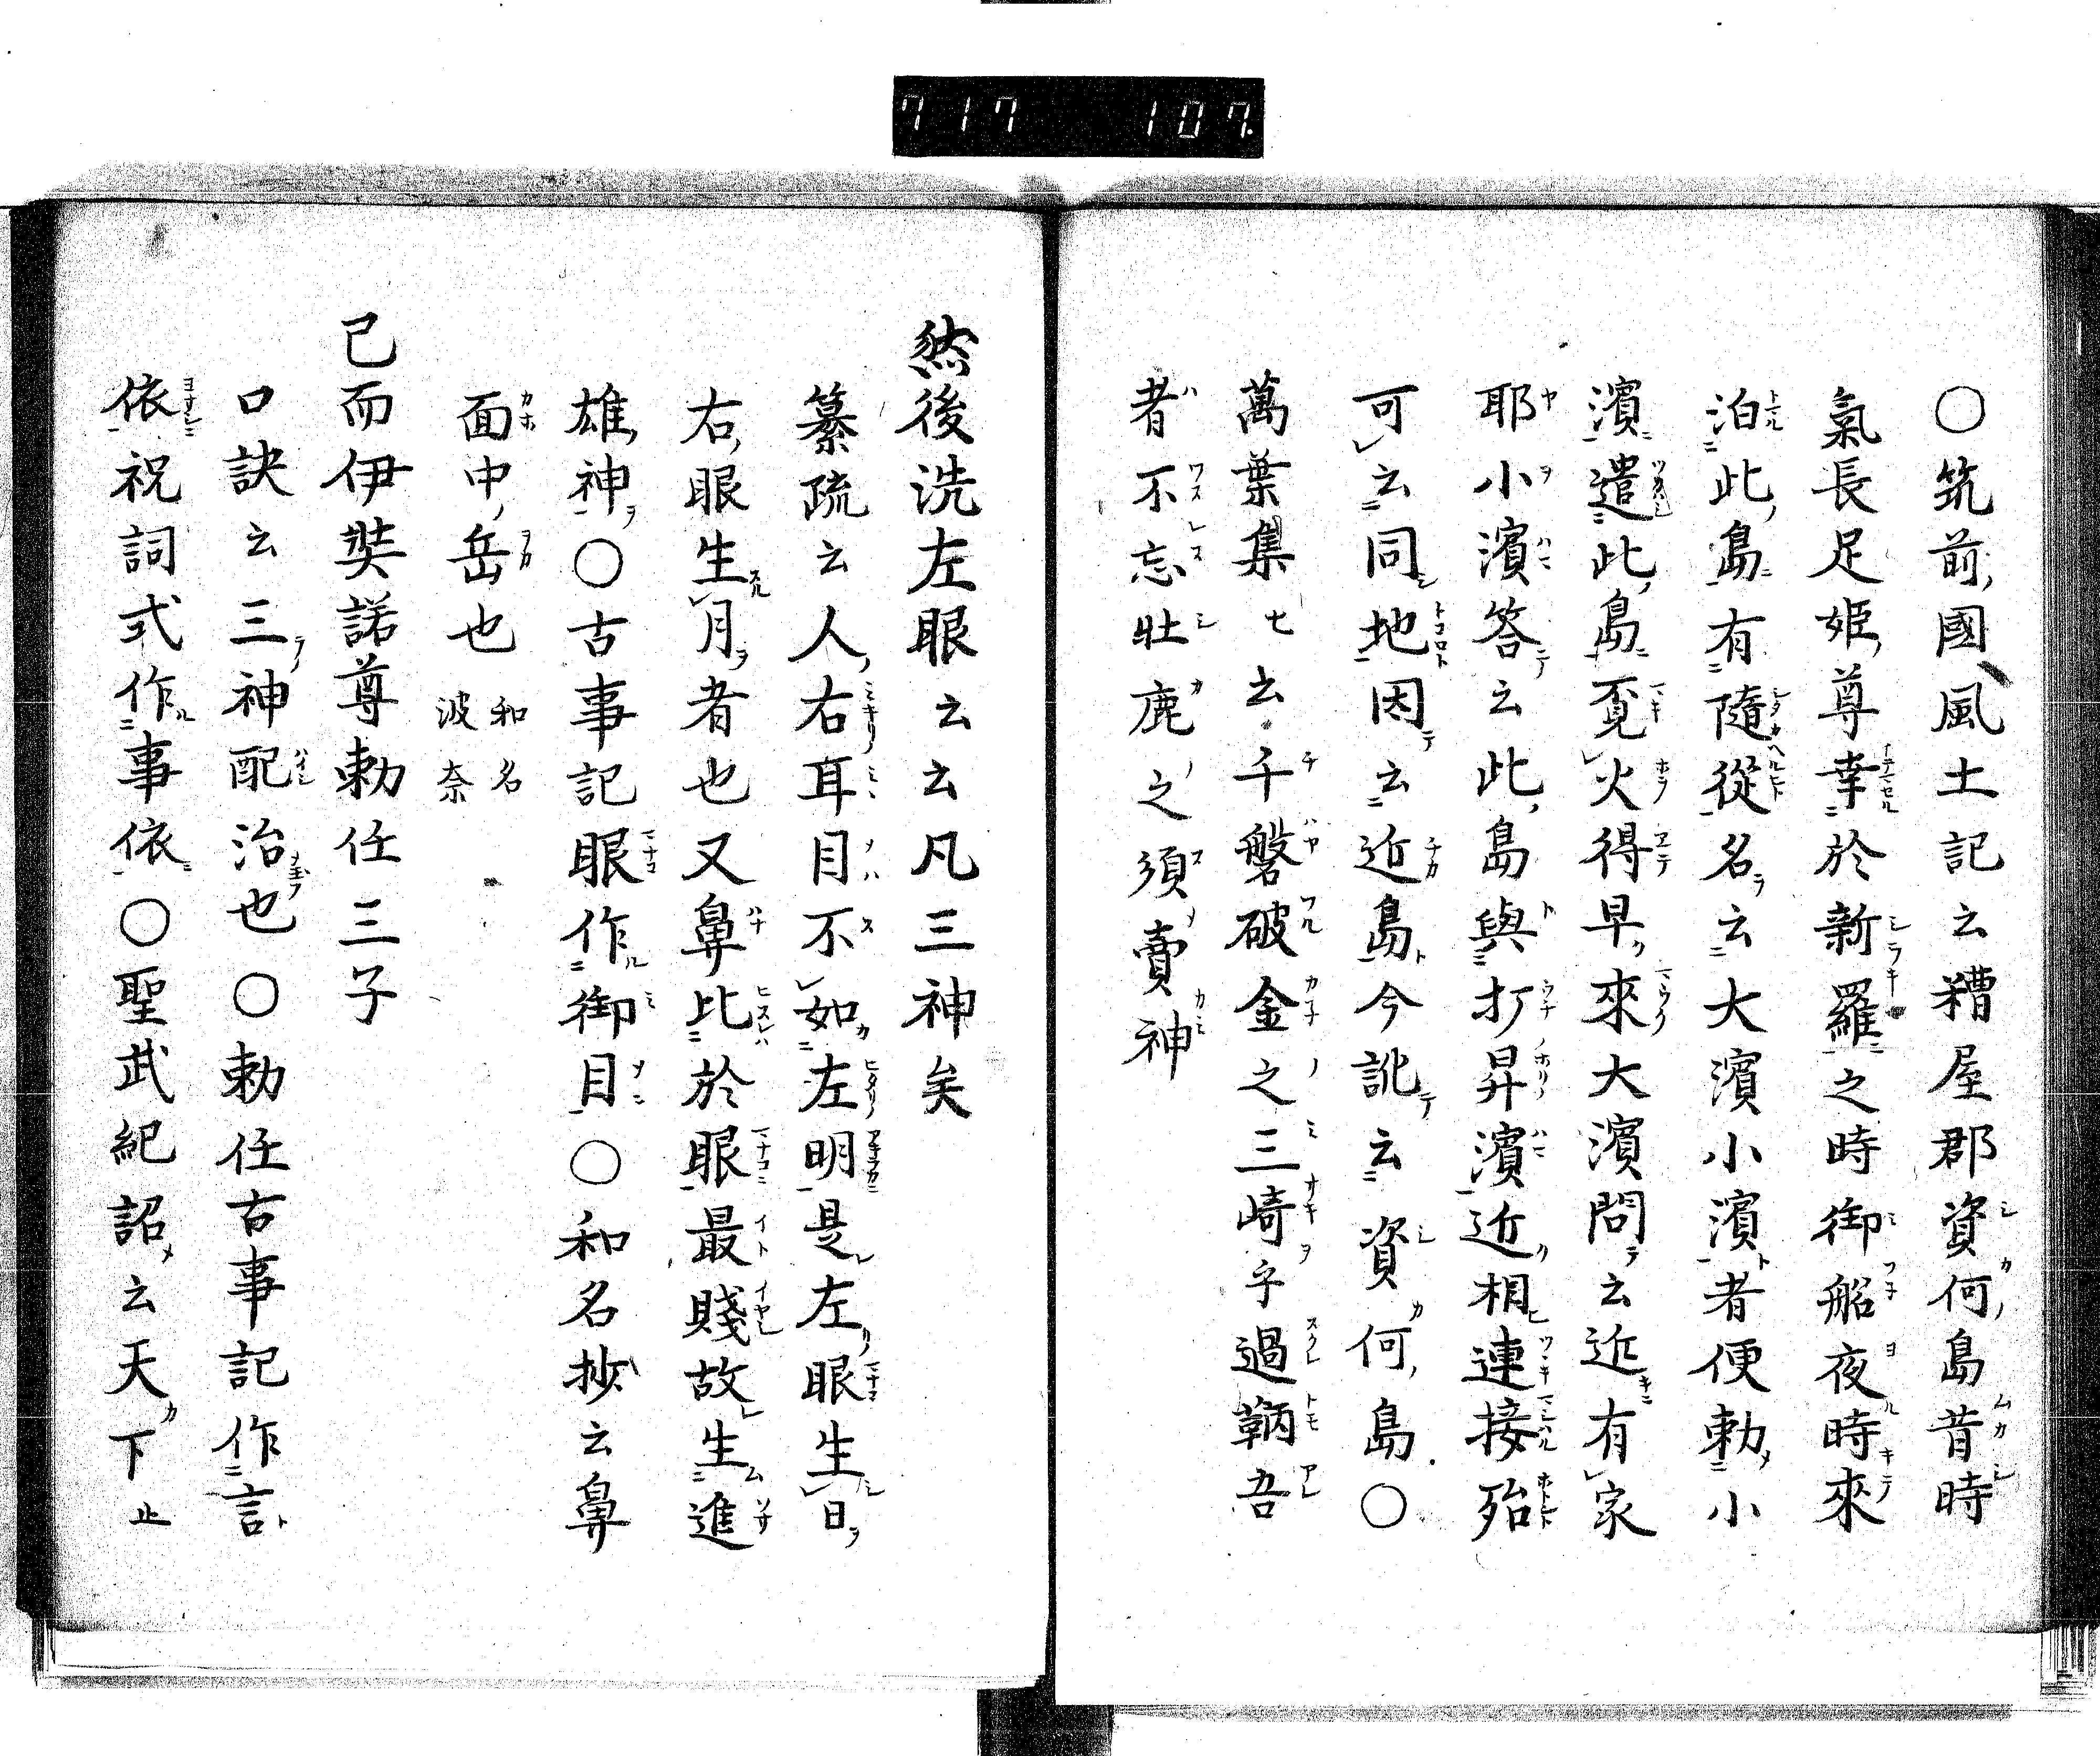 717 107.
○筑前國風土記云糟屋郡資何島昔時
氣長足姫尊幸於新羅之時御船夜時來
泊此島有隨從名云大濱小濱者便勅小
濱遣此島覓火得早來大濱問云近有家
耶小濱答云此島與打昇濱近相連接殆
可云同地因云近島今訛云資何島○
萬葉集七云千磐破金之三崎乎過鞆吾
者不忘壯鹿之須賣神
然後洗左眼云云凡三神矣
纂疏云人右耳目不如左明是左眼生日
右眼生月者也又鼻比於眼最賤故生進
雄神○古事記眼作御目○和名抄云鼻
面中岳也 和名波奈
已而伊弉諾尊勅任三子
口訣云三神配治也○勅任古事記作言
依祝詞式作事依○聖武紀詔云天下止